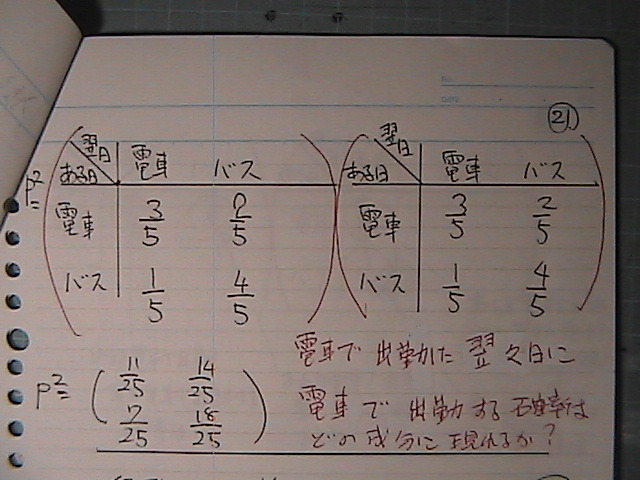 NO.
DATE
21)
翌日 電車 バス 翌日 電車 バス
P²= ある日 ある日
電車 3/5 2/5 電車 3/5 2/5
バス 1/5 4/5 バス 1/5 4/5
電車で出勤した翌々日に
P²= ( 11/25 14/25
7/25 18/25 )
電車で出勤する確率は
どの成分に現れるか?